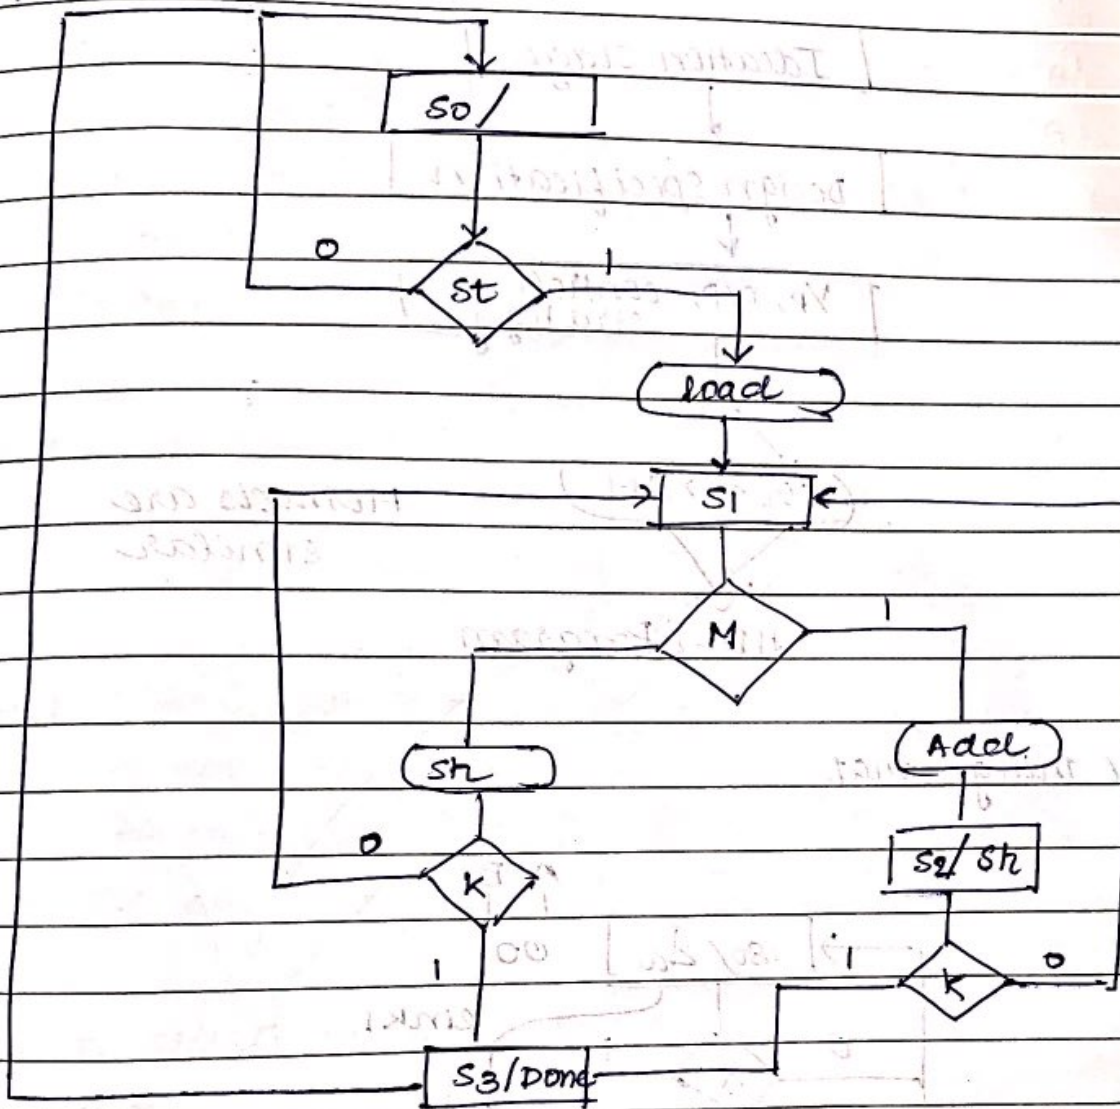 S0/
0
1
St
load
S1
M
1
Sh
Add
0
S2/Sh
K
1
1
K
0
S3/Done